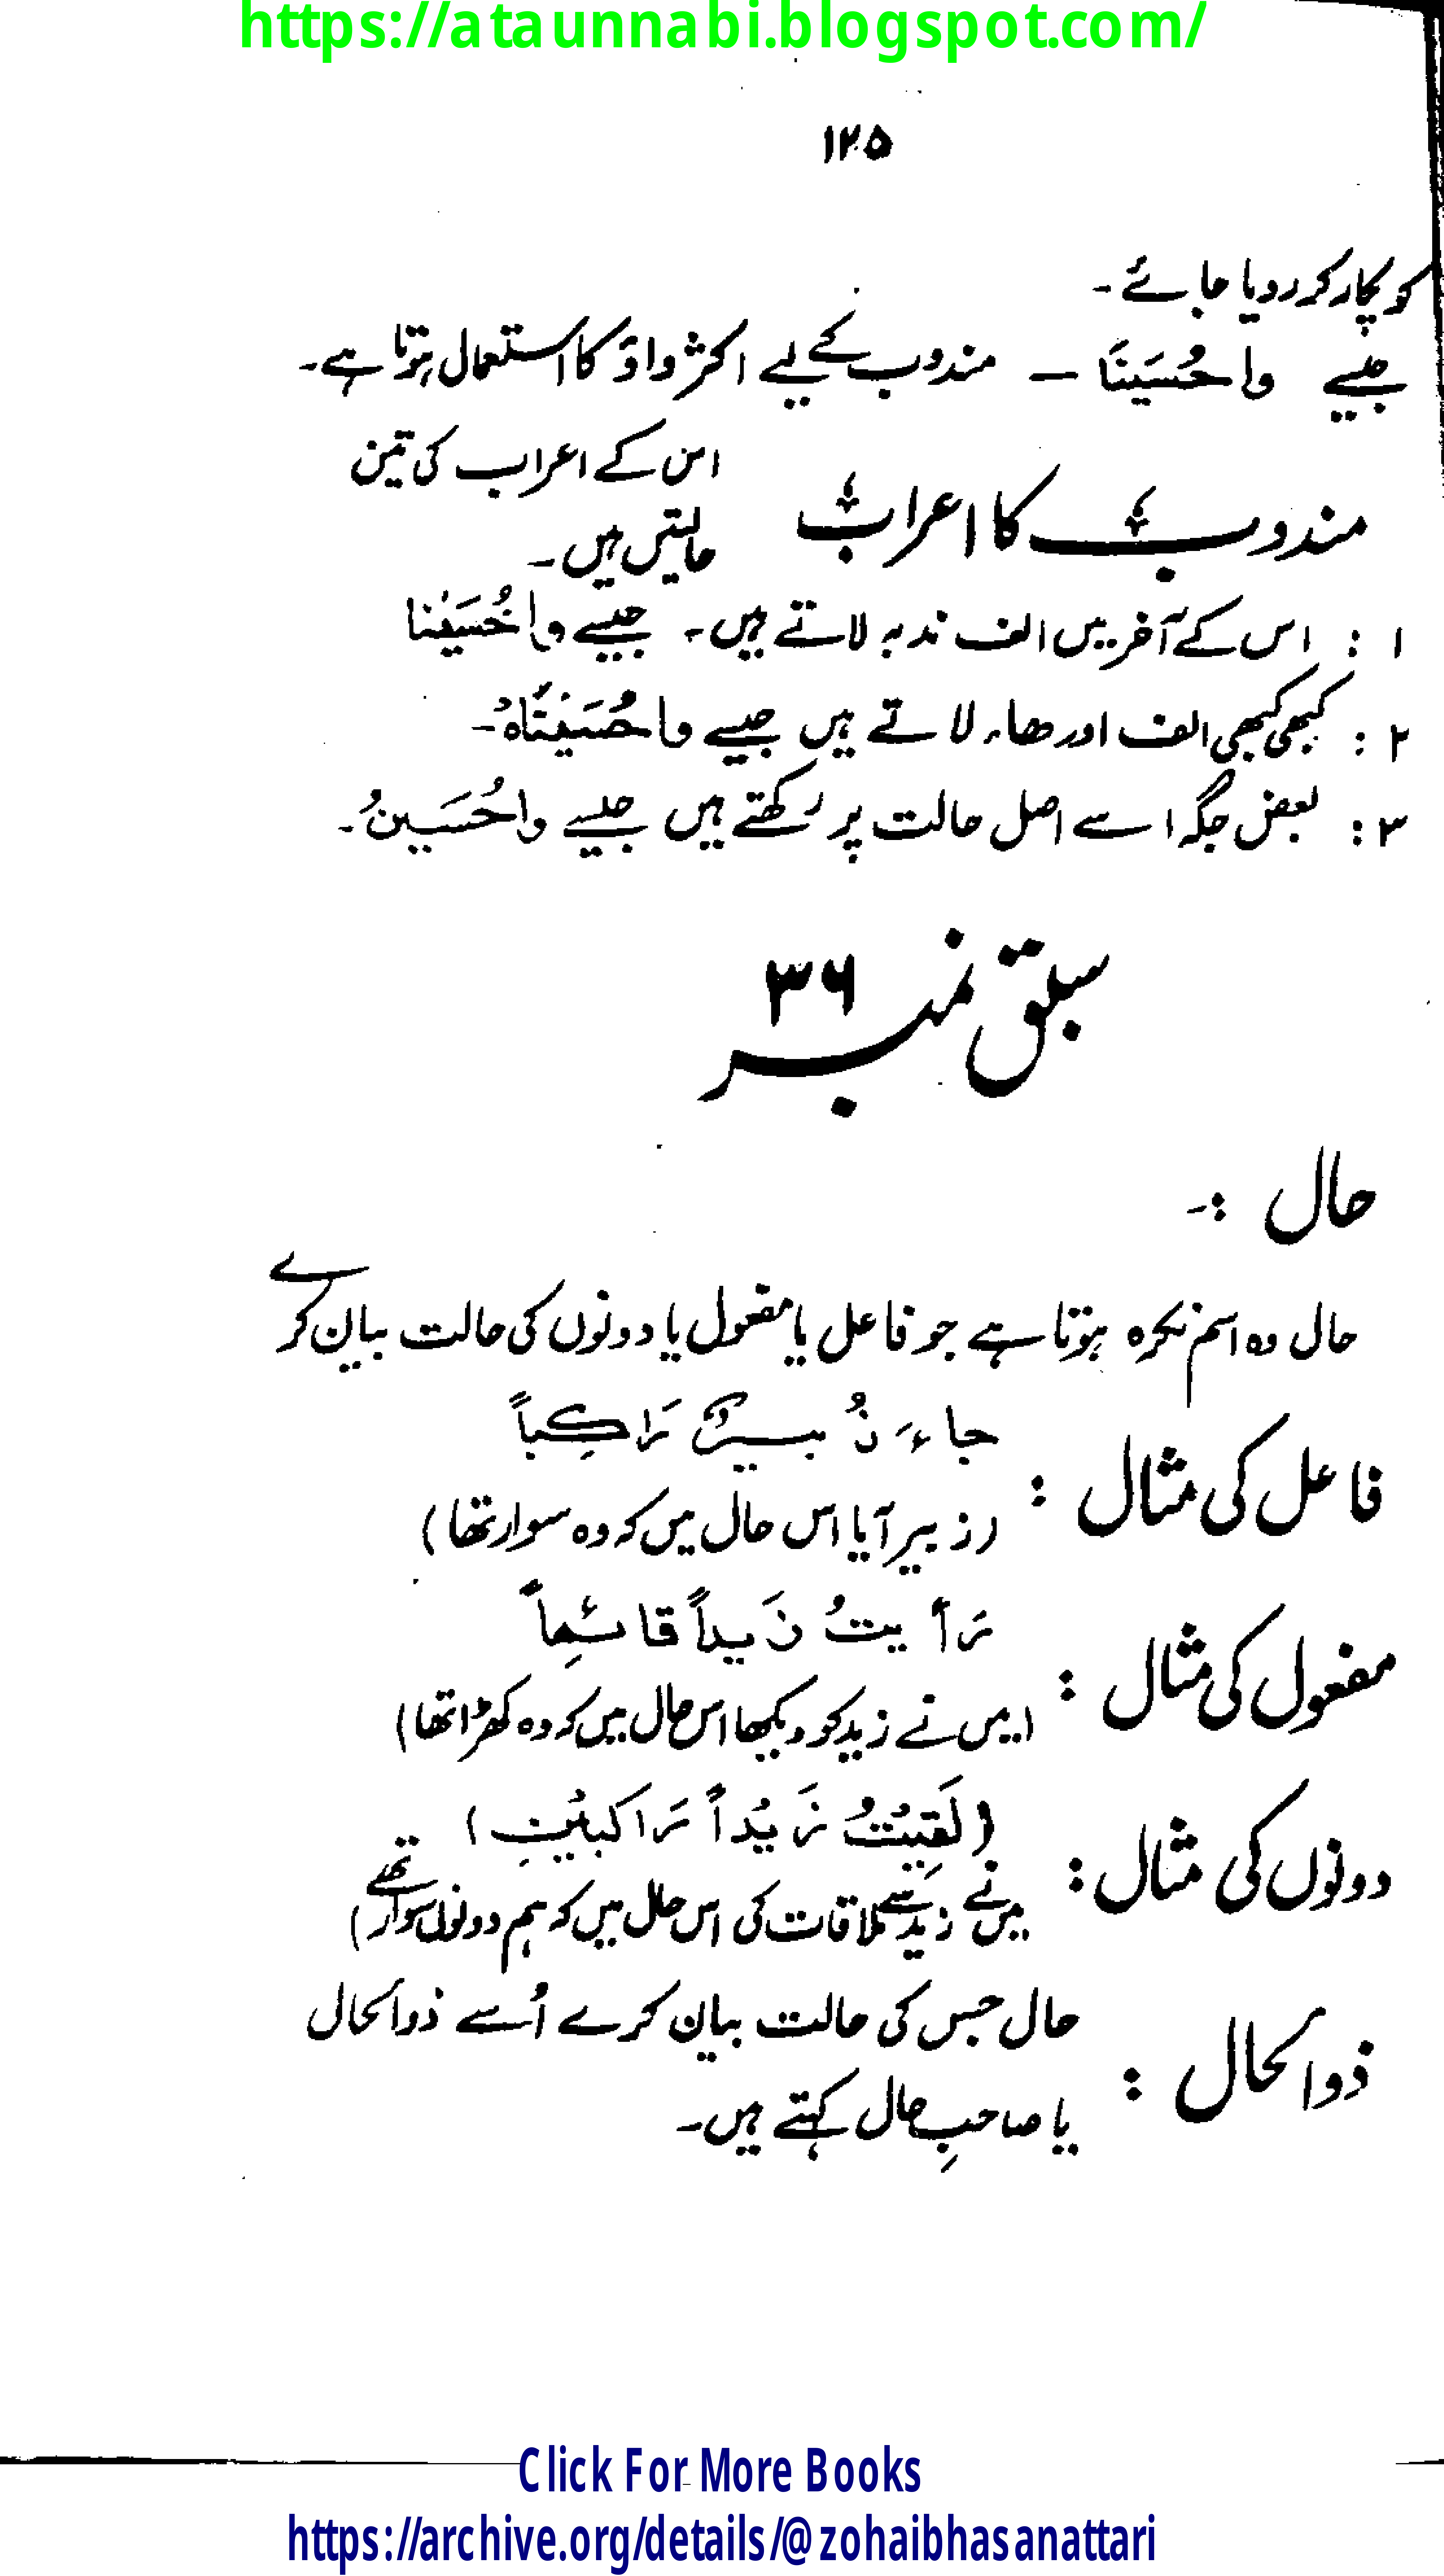 https://ataunnabi.blogspot.com/
۱۲۵
کو پکار کر رد یا جائے ۔
جیسے واحُسَینَا — مندوب کے لیے اکثر واؤ کا استعمال ہوتا ہے۔
مندوب کا اعراب
اس کے اعراب کی تین
حالتیں ہیں ۔
۱ : اس کے آخر میں الف ندبہ لاتے ہیں ۔ جیسے واحُسَیْنا
۲ : کبھی کبھی الف اور ھاء لاتے ہیں جیسے واحُسَیْنَاہُ ۔
۳ : بعض جگہ اسے اصل حالت پر رکھتے ہیں جیسے واحُسَینُ ۔
سبق نمبر ۳۶
حال :۔
حال وہ اسم نکرہ ہوتا ہے جو فاعل یا مفعول یا دونوں کی حالت بیان کرے
فاعل کی مثال : جاءَ زُبیرٌ رَاكِباً
(زبیر آیا اس حال میں کہ وہ سوار تھا)
مفعول کی مثال : رَأیتُ زَیداً قائِماً
(میں نے زید کو دیکھا اس حال میں کہ وہ کھڑا تھا)
دونوں کی مثال : (لَقِیْتُ زَیْداً رَاکبَیْنِ)
میں نے زید سے ملاقات کی اس حال میں کہ ہم دونوں سوار تھے)
ذوالحال : حال جس کی حالت بیان کرے اُسے ذوالحال
یا صاحبِ حال کہتے ہیں ۔
Click For More Books
https://archive.org/details/@zohaibhasanattari